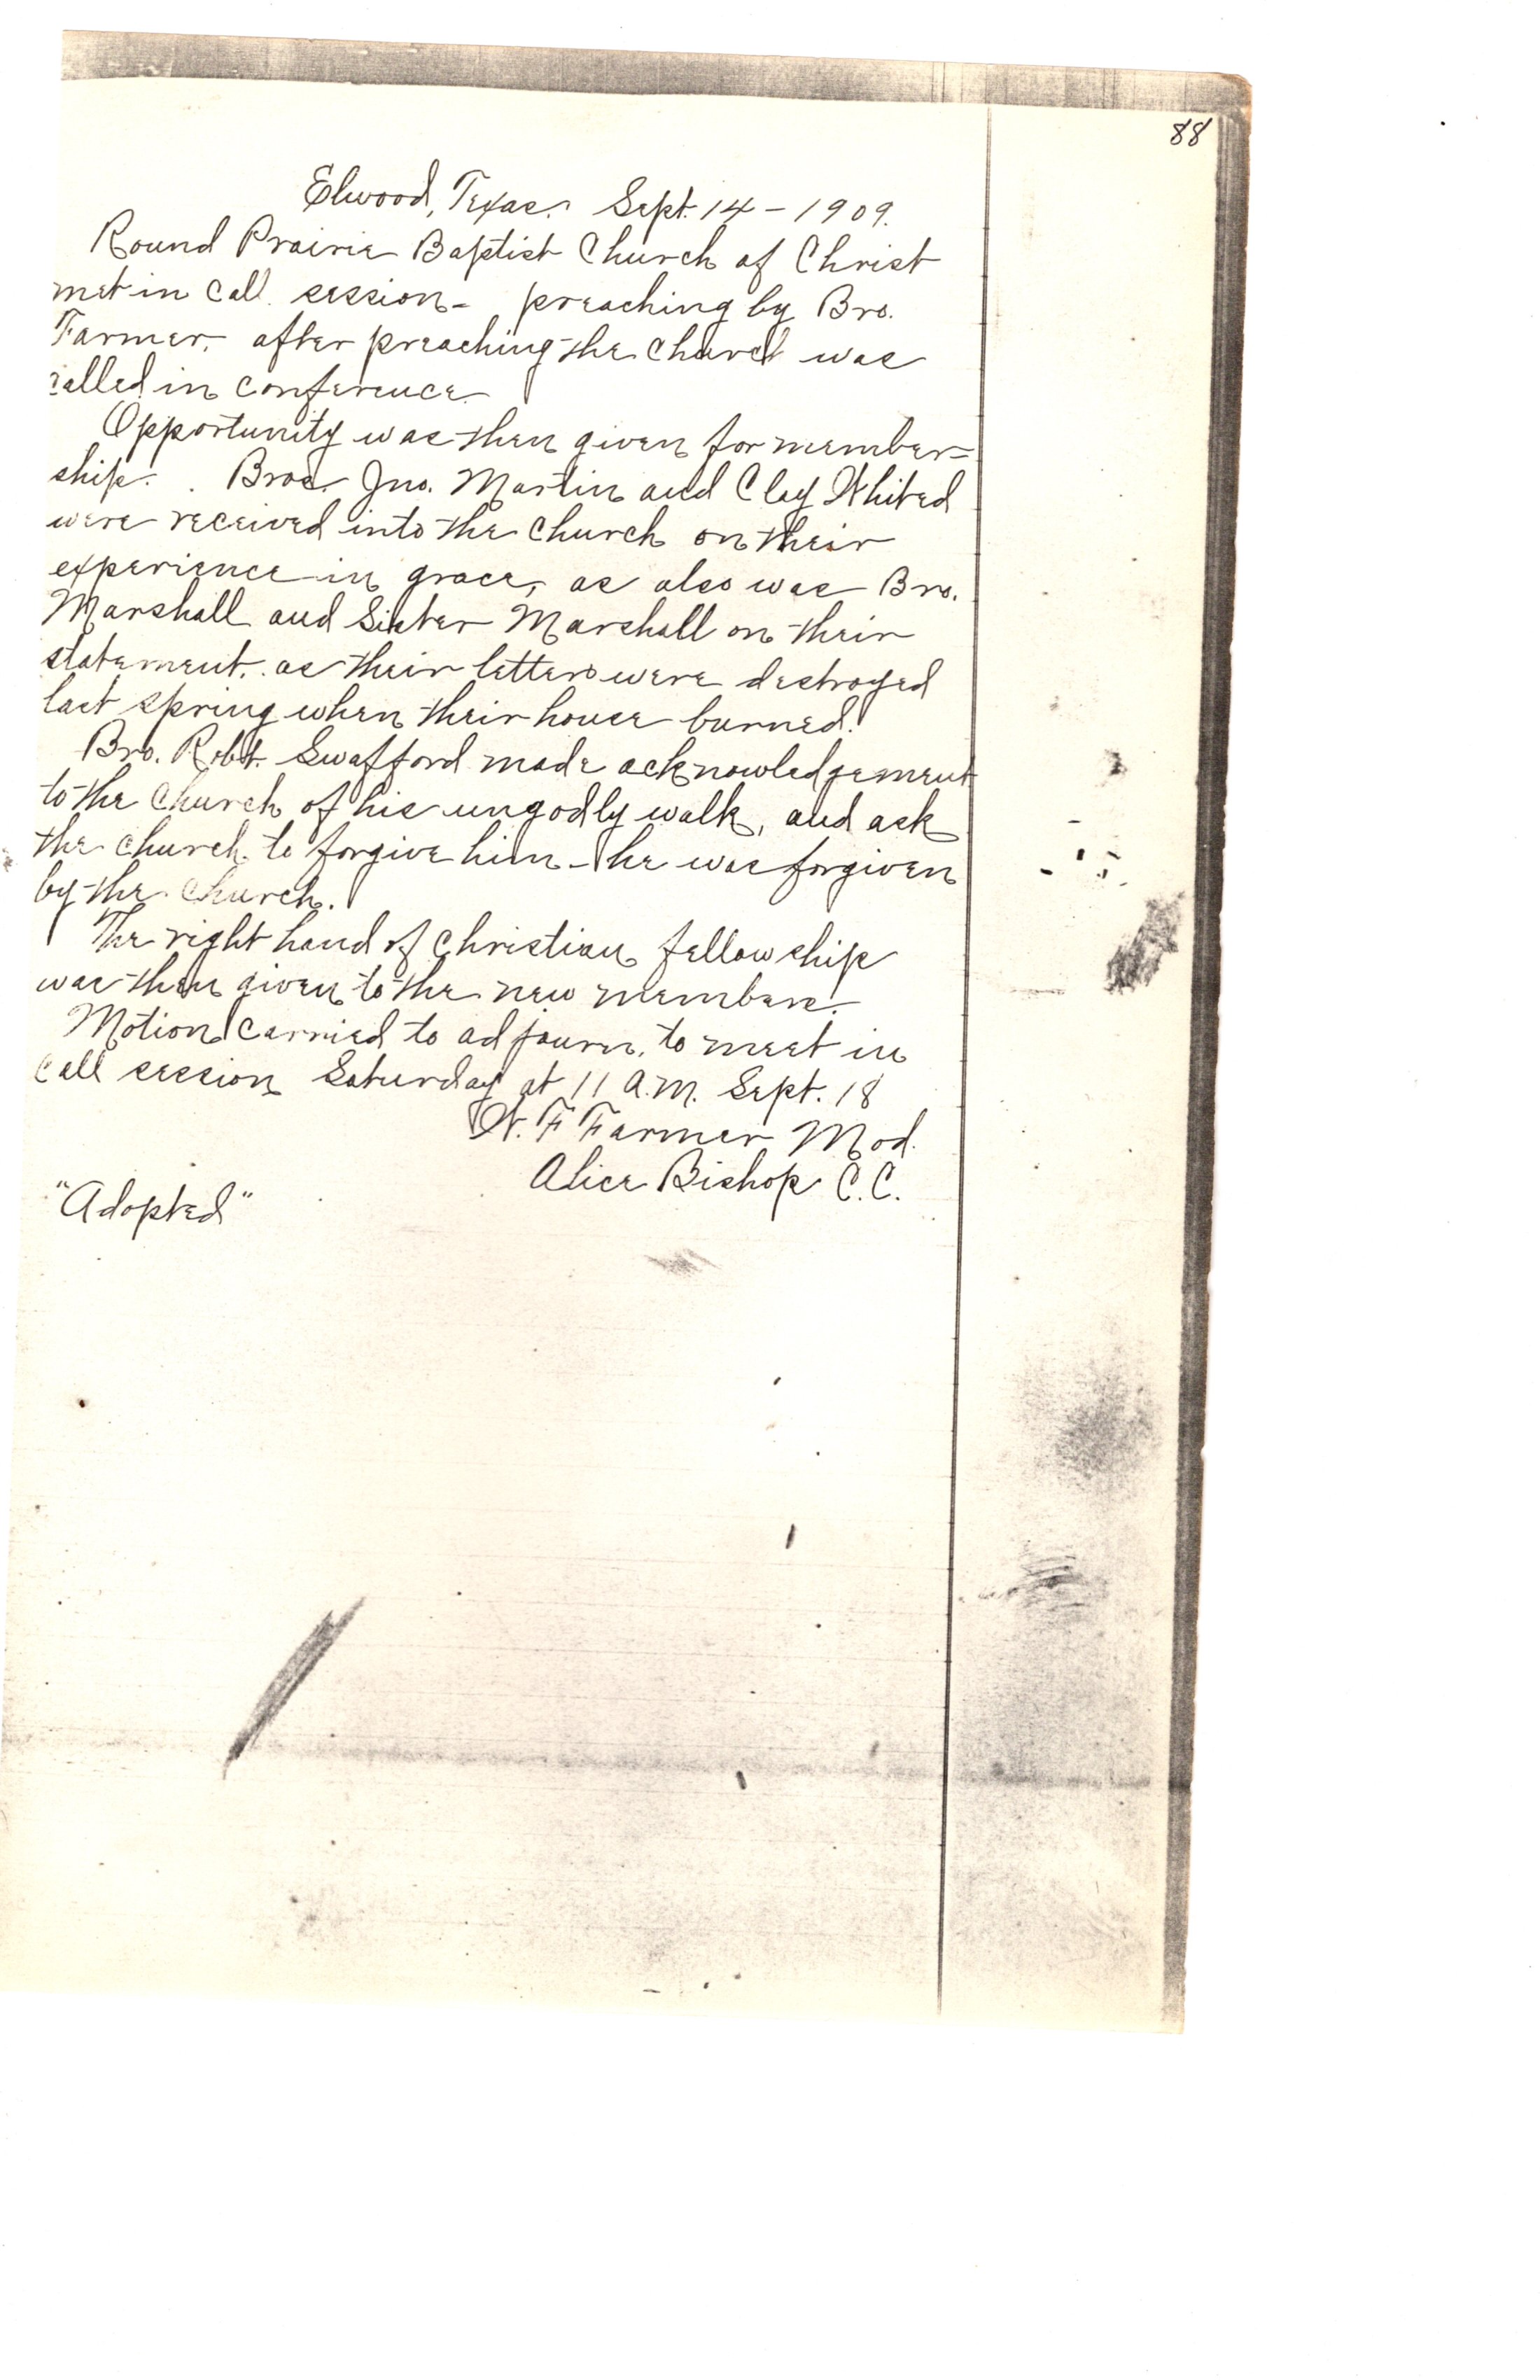 88
Elwood, Texas. Sept. 14 - 1909.
Round Prairie Baptist Church of Christ
met in call session - preaching by Bro.
Farmer, after preaching the church was
called in conference.
Opportunity was then given for member-
ship. Bros. Jno. Martin and Clay Whited
were received into the church on their
experience in grace, as also was Bro.
Marshall and Sister Marshall on their
statement, as their letters were destroyed
last spring when their house burned.
Bro. Robt. Swafford made acknowledgement
to the church of his ungodly walk, and ask
the church to forgive him - he was forgiven
by the church.
The right hand of christian fellowship
was then given to the new members.
Motion carried to adjourn, to meet in
call session Saturday at 11 A.M. Sept. 18
W. F Farmer Mod.
Alice Bishop C.C.
"Adopted"